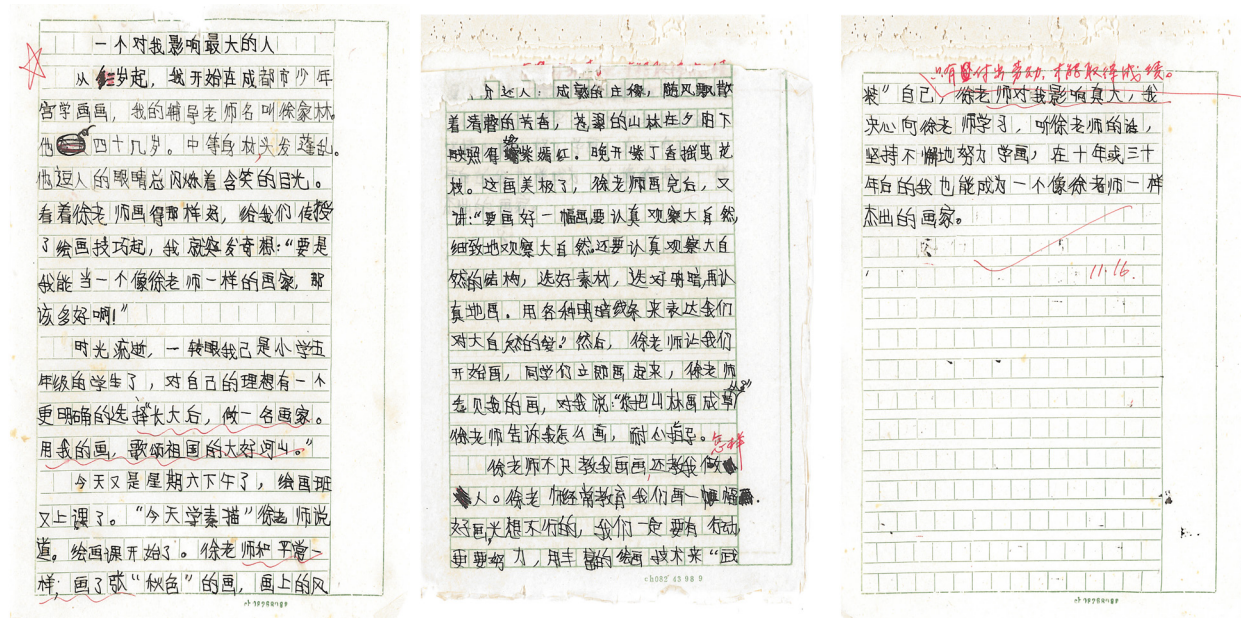 一个对我影响最大的人
从岁起，我开始在成都市少年
宫学画画，我的辅导老师名叫徐家林。
他四十几岁。中等身材，头发蓬乱。
他逗人的眼睛总闪烁着含笑的目光。
看着徐老师画得那样好，给我们传授
了绘画技巧起，我就突发奇想：“要是
我能当一个像徐老师一样的画家，那
该多好啊！”
时光流逝，一转眼我已是小学五
年级的学生了，对自己的理想有一个
更明确的选择“长大后，做一名画家。
用我的画，歌颂祖国的大好河山。”
今天又是星期六下午了，绘画班
又上课了。“今天学素描”徐老师说
道。绘画课开始了。徐老师和平常一
样，画了张“秋色”的画，画上的风
介迷人：成熟的庄稼，随风飘散
着清馨的芳香，苍翠的山林在夕阳下
映照得紫嫣红。晚开紫丁香摇曳花
枝。这画美极了，徐老师画完后，又
讲：“要画好一幅画要认真观察大自然，
细致地观察大自然还要认真观察大自
然的结构，选好素材，选好明暗，再认
真地画。用各种明暗线条来表达我们
对大自然的爱？然后，徐老师让我们
开始画，同学们立即画起来，徐老师
看见我的画，对我说：“你把山林画成草
徐老师告诉我怎么画，耐心指导。
徐老师不只教我画画，还教我怎样做
人。徐老师经常教育我们画一幅
好画光想不行的，我们一定要有行动，
更要努力，用丰富的绘画技术来“武
ch082 43 98 9
只有付出劳动，才能取得成绩。
装”自己，徐老师对我影响真大，我
决心向徐老师学习，听徐老师的话，
坚持不懈地努力学画，在十年或三十
年后的我也能成为一个像徐老师一样
杰出的画家。
11.16.